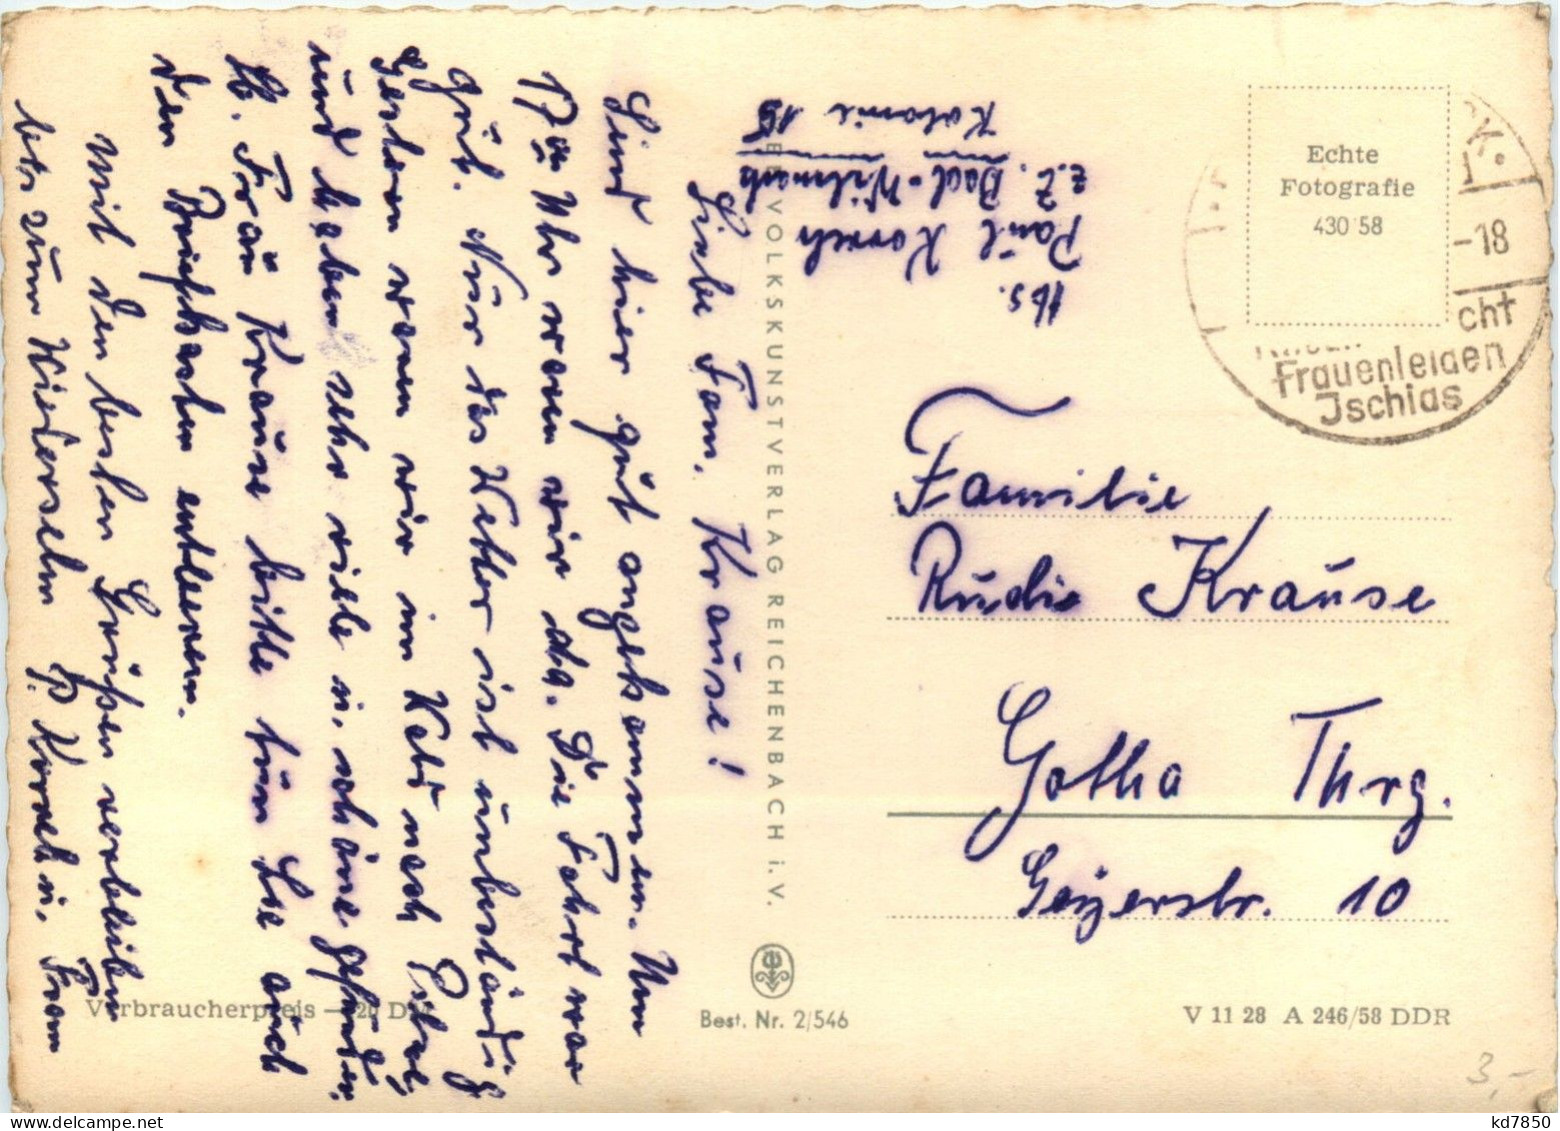 Liebe Fam. Krause!
Sind hier gut angekommen. Um
17 Uhr waren wir da. Die Fahrt war
gut. Nur das Wetter ist unbeständig
Gestern waren wir im Wald nach Pilze,
und haben sehr viele u. schöne gefunden.
Fr. Frau Krause bitte tun Sie auch
den Briefkasten entleeren.
Mit den besten Grüßen verbleiben
bis zum Wiedersehn P. Korsch u. Frau
Abs.
Paul Korsch
z.Z. Bad-Wilsnack
Kolonie 15
VOLKSKUNSTVERLAG REICHENBACH i. V.
Echte
Fotografie
430/58
-18
cht
Frauenleiden
Jschias
Familie
Rudi Krause
Gotha Thrg.
Geyerstr. 10
Verbraucherpreis -,20 DM
Best. Nr. 2/546
V 11 28 A 246/58 DDR
3,-
kd7850